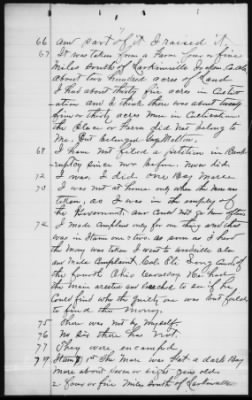 66 and part of it I raised it.
67 It was taken from a Farm four or five
Miles South of Larkinsville Jackson
about two hundred acres of Land
I had about thirty five acres in Cultiv
ation and I think there was about twenty
five or thirty acres more in Cultivation
the Place or Farm did not belong to
me but belonged to
68 I have not filed a petition in Bank
ruptcy since nor before. Never did.
12 I was. I did. One Bay Mare
70 I was not at home only when the Mare was
taken, as I was in the employ of
the Government, and could not go home often
72 I made Complaint only for one thing and that
was in Item one. As soon as I heard
the Money was taken I went to Woodville Ala
and Made Complaint Col. Eli Long Com'd of
the fourth Ohio Cavalry He had
the men arrested and searched to see if he
Could find who the guilty one was but failed
to find the money.
75 There was not by Myself.
76 No sir there was not.
77 They were encamped,
79 Item 1st The Mare was that a dark Bay
mare about seven or eight years old
2 Four or five Miles South of Larkinsville